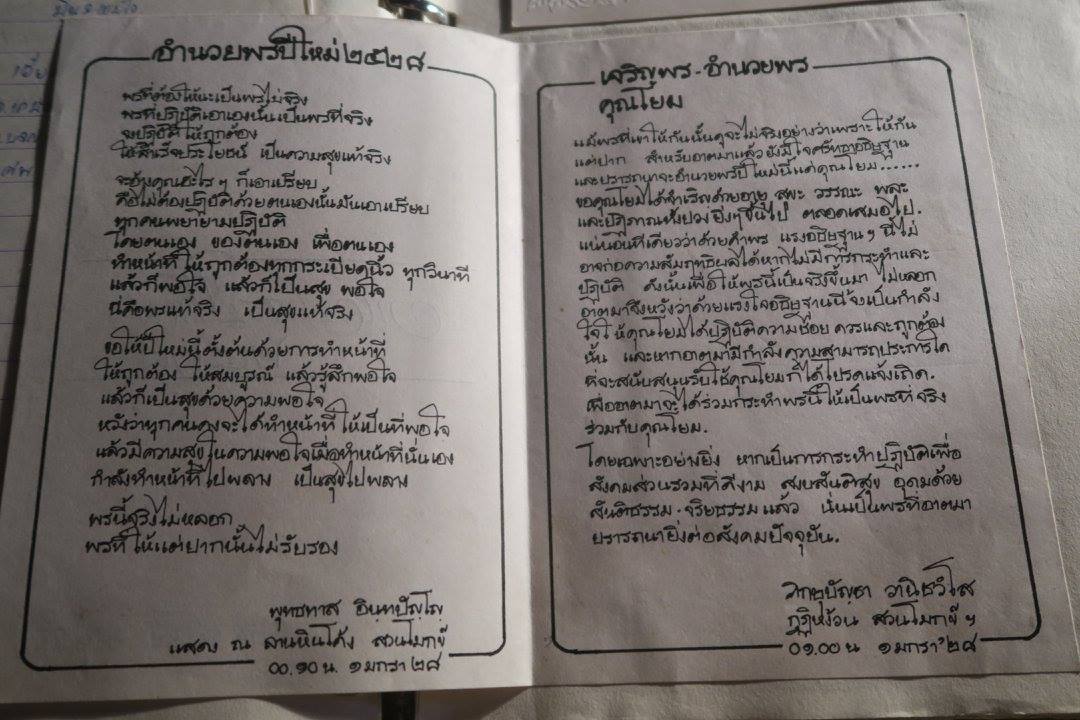 อำนวยพรปีใหม่ ๒๕๒๘
พรที่ต้องให้นะเป็นพรไม่จริง
พรที่ปฏิบัติเอาเองนั้นเป็นพรที่จริง
จงปฏิบัติให้ถูกต้อง
ให้สำเร็จประโยชน์ เป็นความสุขแท้จริง
จะอ้างคุณอะไรๆ ก็เอาเปรียบ
คือไม่ต้องปฏิบัติด้วยตนเองนั้นมันเอาเปรียบ
ทุกคนพยายามปฏิบัติ
โดยตนเอง ของตนเอง เพื่อตนเอง
ทำหน้าที่ให้ถูกต้องทุกกระเบียดนิ้ว ทุกวินาที
แล้วก็พอใจ แล้วก็เป็นสุข พอใจ
นี่คือพรแท้จริง เป็นสุขแท้จริง
ขอให้ปีใหม่นี้ตั้งต้นด้วยการทำหน้าที่
ให้ถูกต้อง ให้สมบูรณ์ แล้วรู้สึกพอใจ
แล้วก็เป็นสุขด้วยความพอใจ
หวังว่าทุกคนคงจะได้ทำหน้าที่ให้เป็นที่พอใจ
แล้วมีความสุขในความพอใจเมื่อทำหน้าที่นั่นเอง
กำลังทำหน้าที่ไปพลาง เป็นสุขไปพลาง
พรนี้จริงไม่หลอก
พรที่ให้แต่ปากนั้นไม่รับรอง
พุทธทาส อินฺทปญฺโญ
แสดง ณ ลานหินโค้ง สวนโมกข์
๐๐.๑๐ น. ๑ มกรา ๒๘
เจริญพร-อำนวยพร
คุณโยม
แม้พรที่เขาให้กันนั้นดูจะไม่จริงอย่างว่าเพราะให้กัน
แต่ปาก สำหรับอาตมาแล้วยังมีใจศรัทธาอธิษฐาน
และปรารถนาจะอำนวยพรปีใหม่นี้แด่คุณโยม......
ขอคุณโยมได้สำเริญด้วยอายุ สุขะ วรรณะ พละ
และปฏิภาณทั้งปวงยิ่งๆขึ้นไป ตลอดเสมอไป.
แน่นอนทีเดียวว่าด้วยคำพร แรงอธิษฐานๆ นี้ไม่
อาจก่อความสัมฤทธิผลได้หากไม่มีการกระทำและ
ปฏิบัติ ดังนั้นเพื่อให้พรนี้เป็นจริงขึ้นมา ไม่หลอก
อาตมาจึงหวังว่าด้วยแรงใจอธิษฐานนี้จงเป็นกำลัง
ใจให้คุณโยมได้ปฏิบัติความชอบ ควรและถูกต้อง
นั้น และหากอาตมามีกำลังความสามารถประการใด
ที่จะสนับสนุนรับใช้คุณโยมก็ได้โปรดแจ้งเถิด.
เพื่ออาตมาจะได้ร่วมกระทำพรนี้ให้เป็นพรที่จริง
ร่วมกับคุณโยม.
โดยเฉพาะอย่างยิ่ง หากเป็นการกระทำปฏิบัติเพื่อ
สังคมส่วนรวมที่ดีงาม สงบสันติสุข อุดมด้วย
สันติธรรม-จริยธรรมแล้ว นั่นเป็นพรที่อาตมา
ปรารถนายิ่งต่อสังคมปัจจุบัน.
วานิชวํโส
สวนโมกข์ฯ
๐๑.๐๐ น ๑ มกรา'๒๘